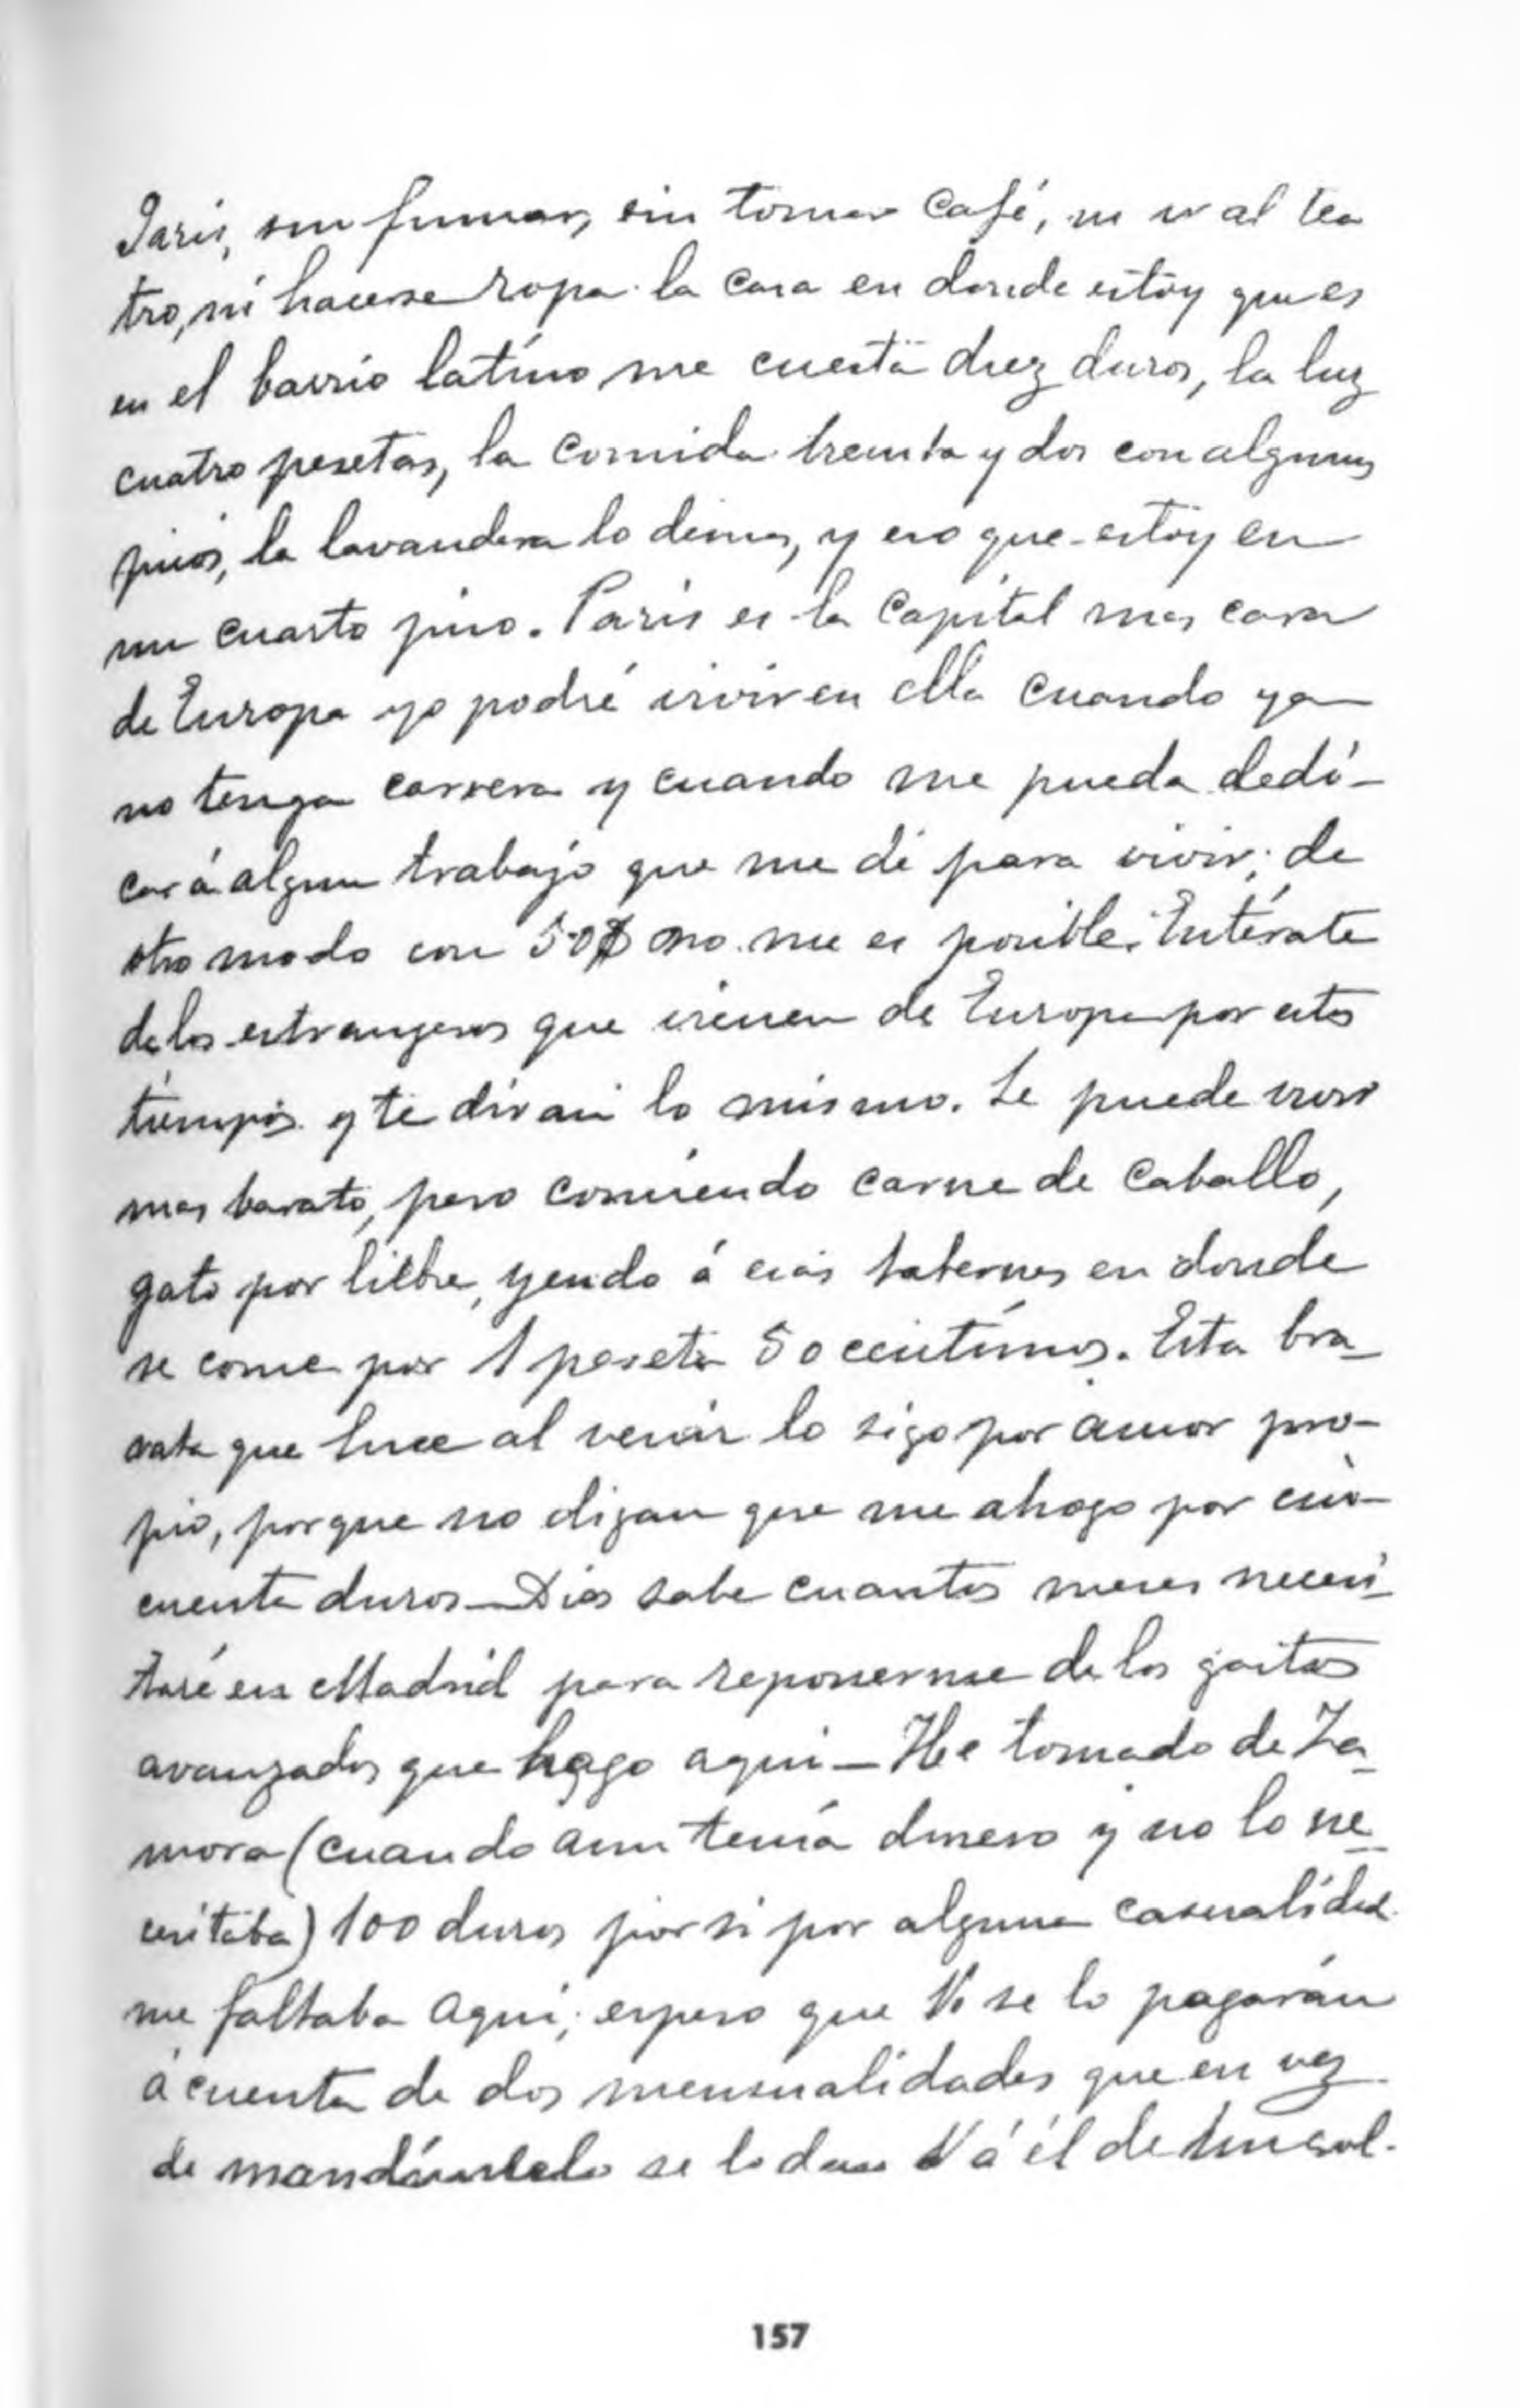 Paris, sin fumar, sin tomar café, ni ir al tea
tro, ni hacerse ropa. la casa en donde estoy que es
en el barrio latino me cuesta diez duros, la luz
cuatro pesetas, la comida treinta y dos con algunos
picos, la lavandera lo demas, y eso que estoy en
un cuarto piso. Paris es la Capital mas cara
de Europa yo podré vivir en ella cuando ya
no tenga carrera y cuando me pueda dedi-
car á algun trabajo que me dé para vivir; de
otro modo con 50$ no me es posible. Entérate
de los estrangeros que vienen de Europa por estos
tiempos y te diran lo mismo. Se puede vivir
mas barato, pero comiendo carne de caballo,
gato por liebre, yendo á esas tabernas en donde
se come por 1 peseta 50 centimos. Esta bra_
vata que hice al venir lo sigo por amor pro-
pio, porque no digan que me ahogo por cin-
cuenta duros_Dios sabe cuantos meses necesi
taré en Madrid para reponerme de los gastos
avanzados que hago aqui_He tomado de Za_
mora (cuando aun tenía dinero y no lo ne_
cesitaba) 100 duros por si por alguna casualidad
me faltaba aqui; espero que V se lo pagarán
á cuenta de dos mensualidades que en vez
de mandármelo se lo dan V á él de un sol.
157